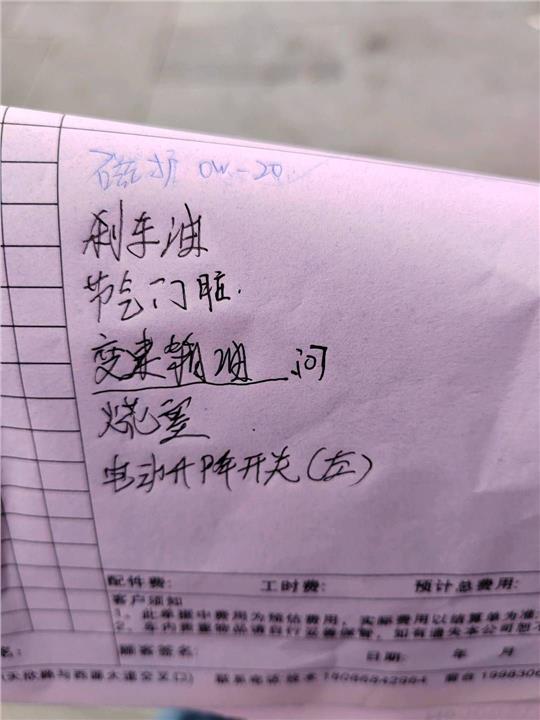 磁护 0W-20
刹车油
节气门脏.
变速箱油 问
火花塞
电动升降开关(左)
配件费: 工时费: 预计总费用:
客户须知
1、此单据中费用为预估费用,实际费用以结算单为准
2、车内贵重物品请自行妥善保管,如有遗失本公司恕不
名: 顾客签名: 日期: 年 月
大道交叉口)